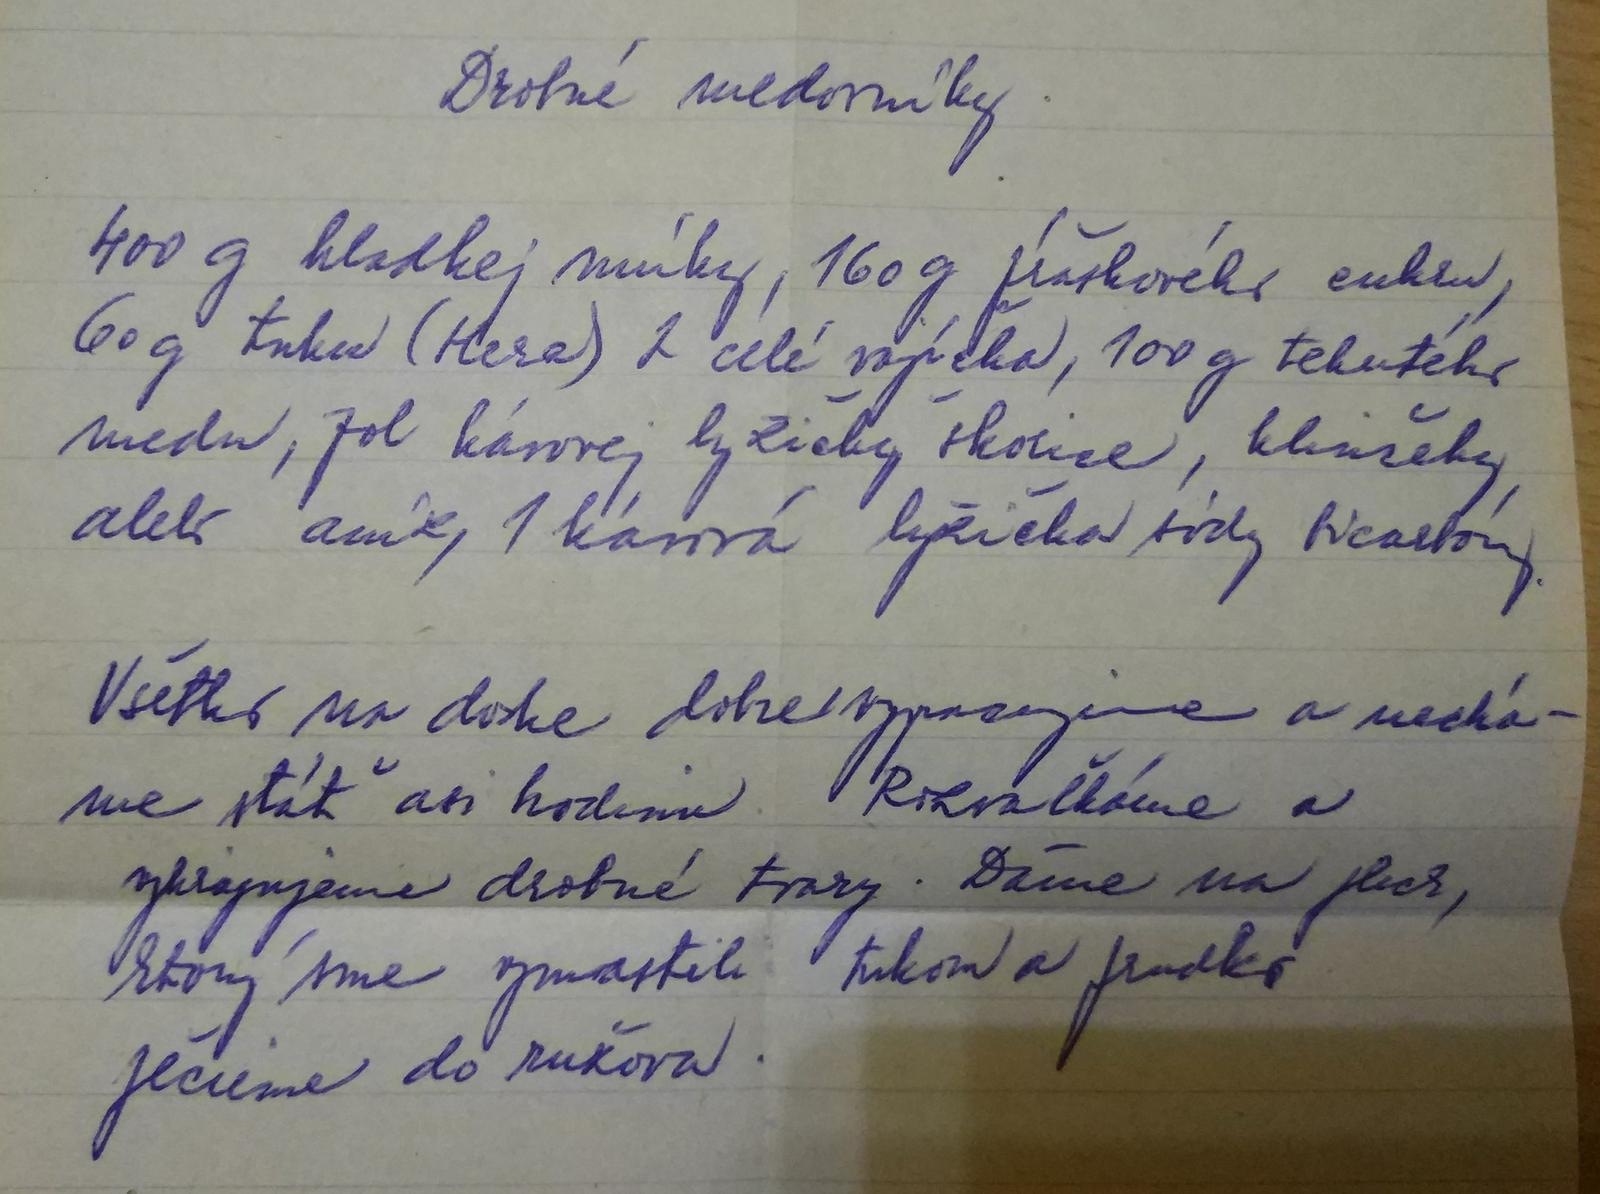 Drobné medovníky.
400 g hladkej múky, 160 g práškového cukru,
60 g tuku (Hera) 2 celé vajíčka, 100 g tekutého
medu, pol kávovej lyžičky škorice, klinčeky
alebo aníz, 1 kávová lyžička sódy bicarbóny.
Všetko na doske dobre vypracujeme a nechá-
me stáť asi hodinu. Rozvaľkáme a
vykrajujeme drobné tvary. Dáme na plech,
ktorý sme vymastili tukom a prudko
pečieme do ružova.